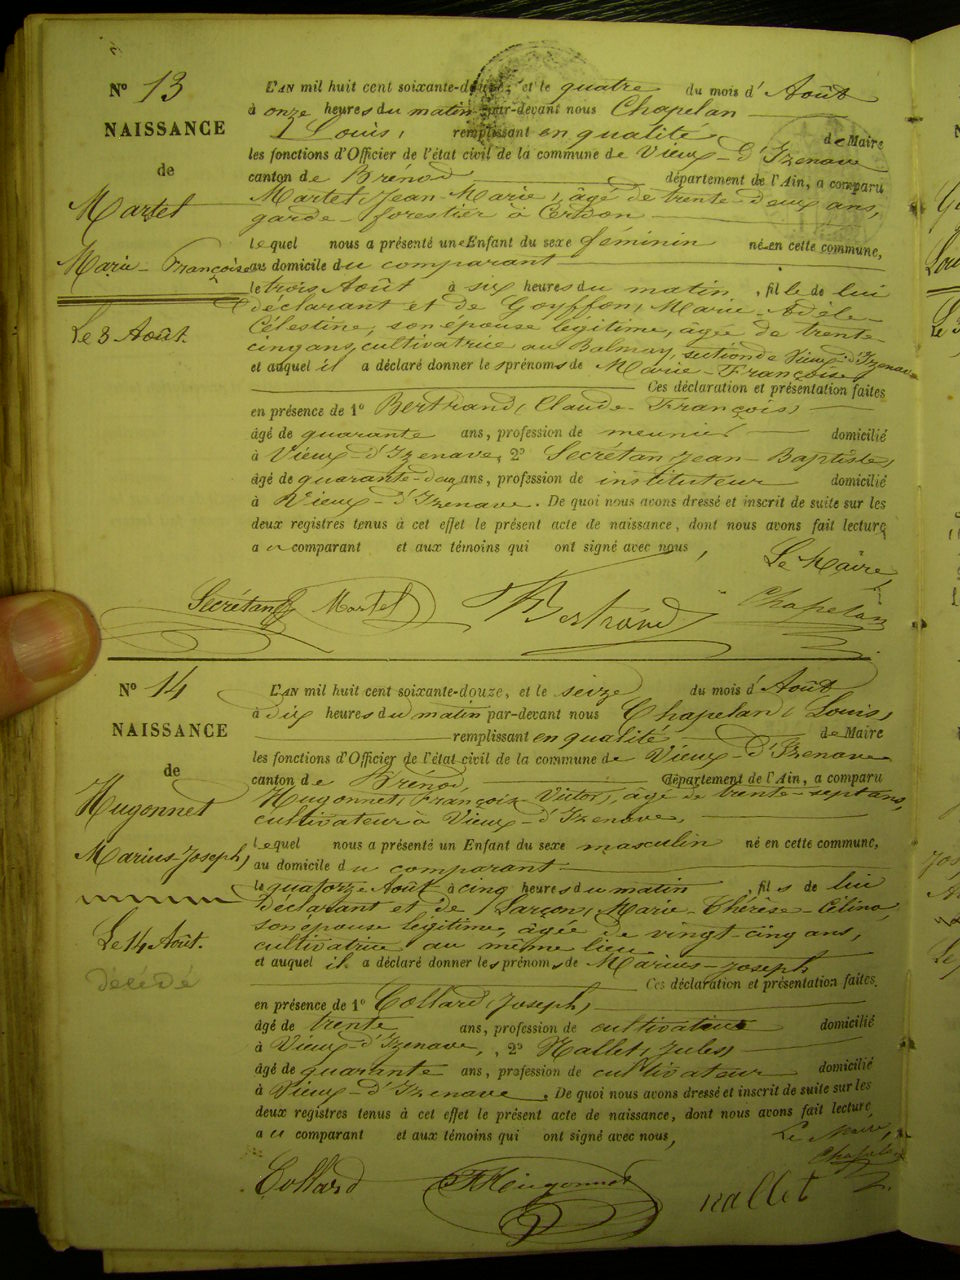 N° 13
NAISSANCE
de
Martel
Marie-Françoise
Le 3 Août.
L'AN mil huit cent soixante-douze, et le quatre du mois d'Août
à onze heures du matin par-devant nous Chapelan
Louis, remplissant en qualité de Maire
les fonctions d'Officier de l'état civil de la commune de Vieux-d'Izenave
canton de Brénod département de l'Ain, a comparu
Martel Jean-Marie, âgé de trente-deux ans,
garde-forestier à Cerdon
lequel nous a présenté un Enfant du sexe féminin né en cette commune,
au domicile du comparant
le trois Août à six heures du matin, fille de lui
déclarant et de Goyffon, Marie-Adèle-
Célestine, son épouse légitime, âgée de trente-
cinq ans, cultivatrice au Balmay, section de Vieux-d'Izenave
et auquel il a déclaré donner les prénoms de Marie-Françoise
Ces déclaration et présentation faites
en présence de 1° Bertrand, Claude-François,
âgé de quarante ans, profession de meunier domicilié
à Vieux-d'Izenave, 2° Secrétan Jean-Baptiste,
âgé de quarante-deux ans, profession de instituteur domicilié
à Vieux-d'Izenave. De quoi nous avons dressé et inscrit de suite sur les
deux registres tenus à cet effet le présent acte de naissance, dont nous avons fait lecture
au comparant et aux témoins qui ont signé avec nous,
Le Maire,
Secrétan Martel Bertrand Chapelan
N° 14
NAISSANCE
de
Hugonnet
Marius-Joseph,
Le 14 Août.
décédé
L'AN mil huit cent soixante-douze, et le seize du mois d'Août
à dix heures du matin par-devant nous Chapelan, Louis,
remplissant en qualité de Maire
les fonctions d'Officier de l'état civil de la commune de Vieux-d'Izenave
canton de Brénod, département de l'Ain, a comparu
Hugonnet, François-Victor, âgé de trente-sept ans,
cultivateur à Vieux-d'Izenave,
lequel nous a présenté un Enfant du sexe masculin né en cette commune,
au domicile du comparant
le quatorze Août à cinq heures du matin, fils de lui
déclarant et de Larçon, Marie-Thérèse-Célina,
son épouse légitime, âgée de vingt-cinq ans,
cultivatrice au même lieu
et auquel il a déclaré donner les prénoms de Marius-Joseph
Ces déclaration et présentation faites
en présence de 1° Collard, Joseph,
âgé de trente ans, profession de cultivateur domicilié
à Vieux-d'Izenave, 2° Nallet, Jules,
âgé de quarante ans, profession de cultivateur domicilié
à Vieux-d'Izenave. De quoi nous avons dressé et inscrit de suite sur les
deux registres tenus à cet effet le présent acte de naissance, dont nous avons fait lecture
au comparant et aux témoins qui ont signé avec nous,
Le Maire,
Chapelan
Collard Hugonnet nallet